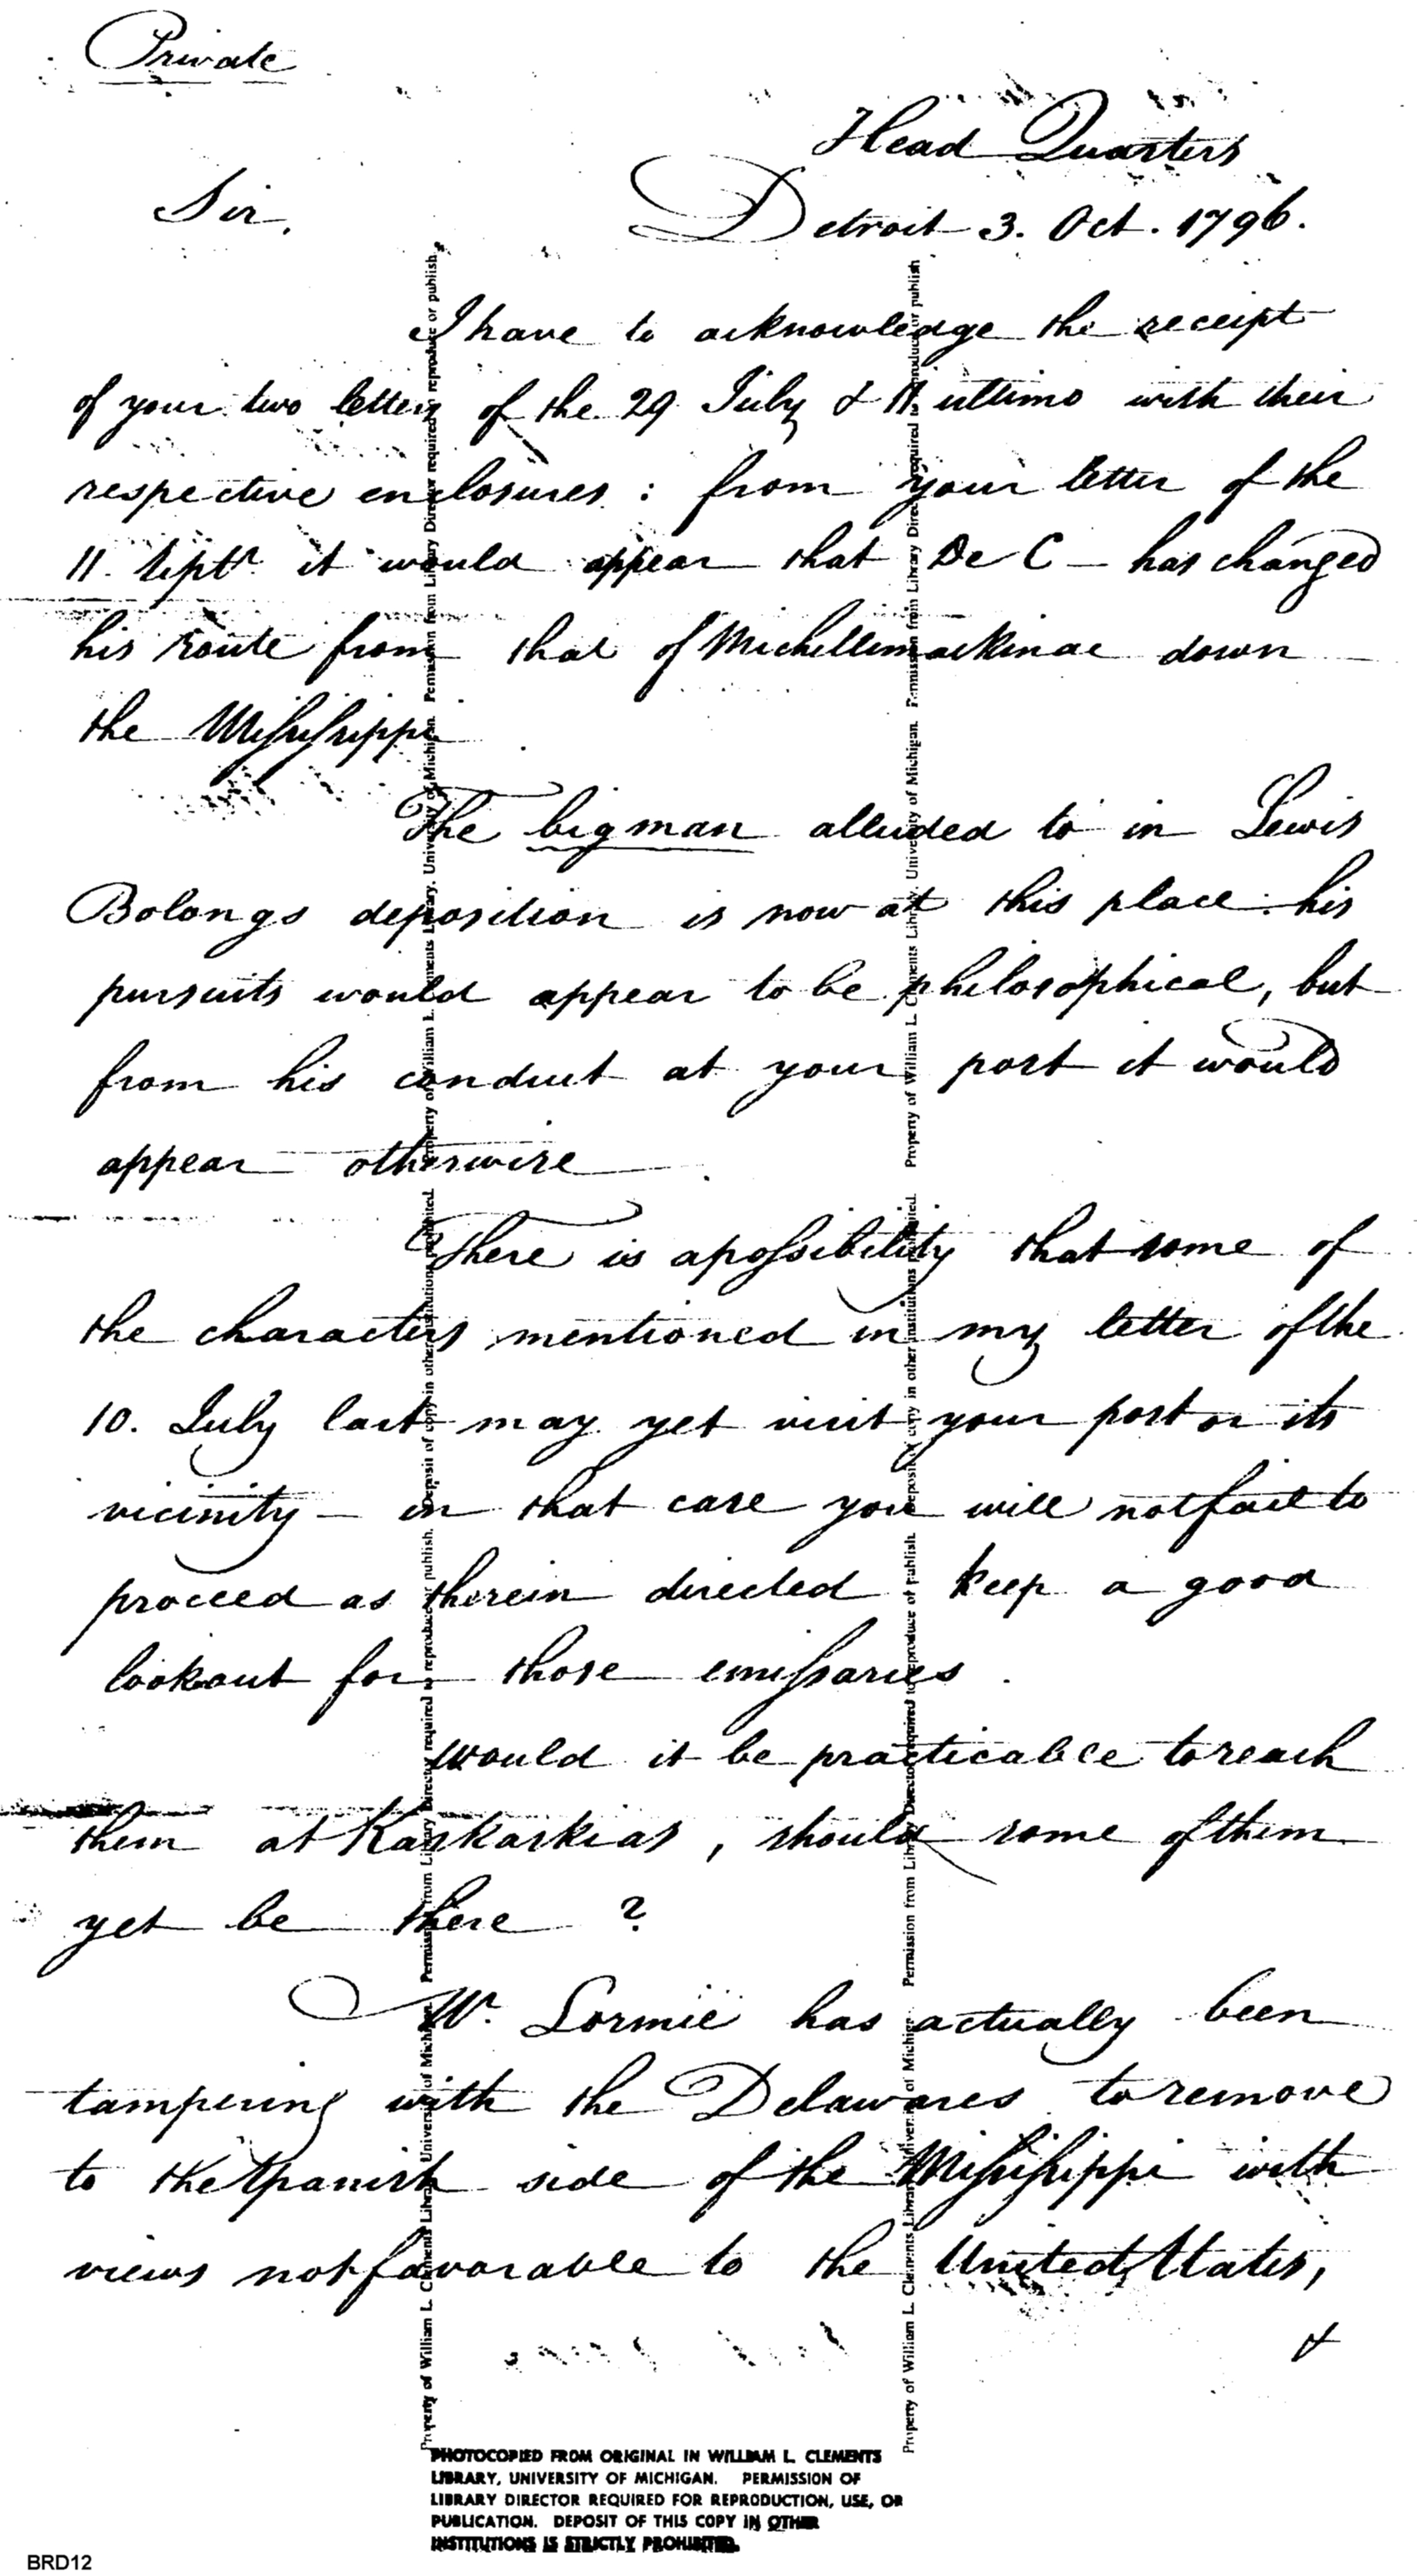 Private
Head Quarters
Sir,
Detroit 3. Oct. 1796.
I have to acknowledge the receipt
of your two letters of the 29 July & 11 ultimo with their
respective enclosures : from your letter of the
11. Septr. it would appear that De C — has changed
his route from that of Michillimackinac down
the Mississippi
The big man alluded to in Lewis
Bolongs deposition is now at this place : his
pursuits would appear to be philosophical, but
from his conduct at your post it would
appear otherwise.
There is a possibility that some of
the characters mentioned in my letter of the
10. July last may yet visit your post or its
vicinity — in that case you will not fail to
proceed as therein directed keep a good
lookout for those emissaries.
Would it be practicable to reach
them at Kaskaskias, should some of them
yet be there ?
Mr. Lormie has actually been
tampering with the Delawares to remove
to the Spanish side of the Mississippi with
views not favorable to the United States,
&
Property of William L. Clements Library, University of Michigan. Permission from Library Director required to reproduce or publish. Deposit of copy in other institutions prohibited.
Property of William L. Clements Library, University of Michigan. Permission from Library Director required to reproduce or publish
Property of William L. Clements Library, University of Michigan. Permission from Library Director required to reproduce of publish. Deposit of copy in other institutions prohibited.
Property of William L. Clements Library, University of Michigan. Permission from Library Director required to reproduce or publish
PHOTOCOPIED FROM ORIGINAL IN WILLIAM L. CLEMENTS
LIBRARY, UNIVERSITY OF MICHIGAN. PERMISSION OF
LIBRARY DIRECTOR REQUIRED FOR REPRODUCTION, USE, OR
PUBLICATION. DEPOSIT OF THIS COPY IN OTHER
INSTITUTIONS IS STRICTLY PROHIBITED.
BRD12